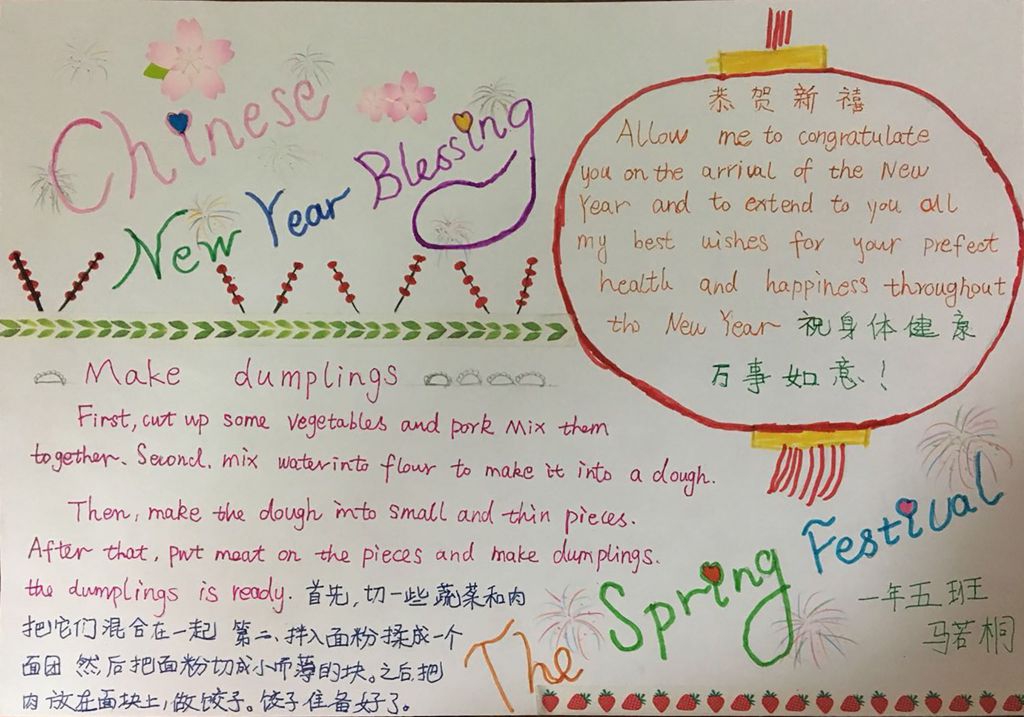 Chinese
New Year Blessing
恭贺新禧
Allow me to congratulate
you on the arrival of the New
Year and to extend to you all
my best wishes for your prefect
health and happiness throughout
tho New Year 祝身体健康
万事如意！
Make dumplings
First, cut up some vegetables and pork Mix them
together. Second. mix water into flour to make it into a dough.
Then, make the dough into small and thin pieces.
After that, put meat on the pieces and make dumplings.
the dumplings is ready. 首先,切一些蔬菜和肉
把它们混合在一起 第二、拌入面粉揉成一个
面团 然后把面粉切成小而薄的块。之后,把
肉放在面块上,做饺子。饺子准备好了。
The Spring Festival
一年五班
马若桐